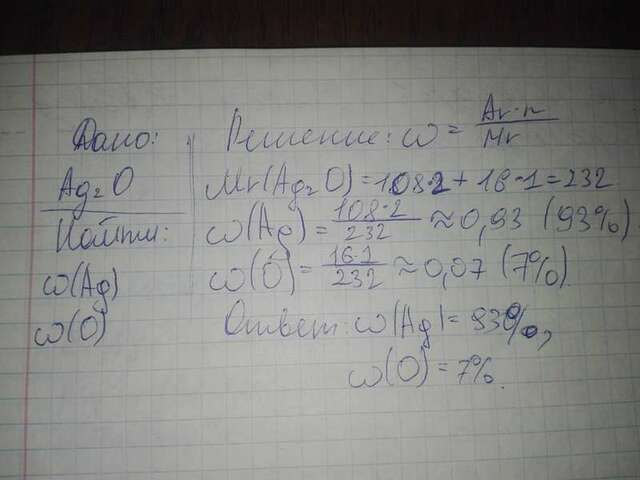 Дано:
Ag₂O
Найти:
ω(Ag)
ω(O)
Решение: ω = Ar·n / Mr
Mr(Ag₂O)=108·2+16·1=232
ω(Ag) = 108·2 / 232 ≈ 0,93 (93%)
ω(O) = 16·1 / 232 ≈ 0,07 (7%).
Ответ: ω(Ag)=93%,
ω(O)=7%.